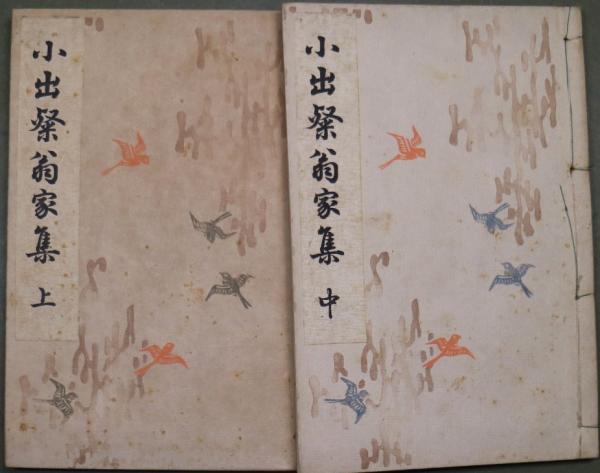 小出粲翁家集 上
小出粲翁家集 中